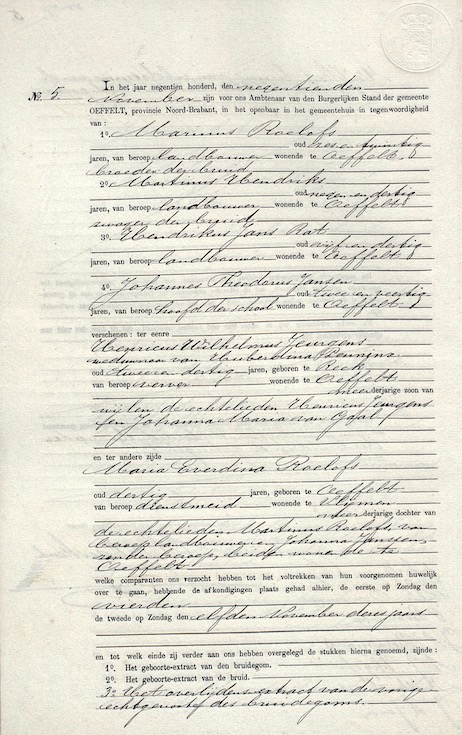 In het jaar negentien honderd, den negentienden
No. 5. November zijn voor ons Ambtenaar van den Burgerlijken Stand der gemeente
OEFFELT, provincie Noord-Brabant, in het openbaar in het gemeentehuis in tegenwoordigheid
van :
1o. Marinus Roelofs
oud zes en twintig
jaren, van beroep landbouwer wonende te Oeffelt,
broeder der bruid
2o. Martinus Hendriks
oud negen en dertig
jaren, van beroep landbouwer wonende te Oeffelt,
zwager der bruid
3o. Hendrikus Jans
oud vijf en dertig
jaren, van beroep landbouwer wonende te Oeffelt
4o. Johannes Theodorus Jansen
oud twee en veertig
jaren, van beroep hoofd der school wonende te Oeffelt
verschenen : ter eene
Henricus Wilhelmus Jeurgens
weduwnaar van Huberdina
oud twee en dertig jaren, geboren te Reek
van beroep verver wonende te Oeffelt
meerderjarige zoon van
wijlen de echtelieden Henricus Jeurgens
en Johanna Maria van
en ter andere zijde
Maria Everdina Roelofs
oud dertig jaren, geboren te Oeffelt
van beroep dienstmeid wonende te
meerderjarige dochter van
de echtelieden Martinus Roelofs, van
beroep landbouwer en Johanna Janssen,
zonder beroep, beiden wonende te
Oeffelt
welke comparanten ons verzocht hebben tot het voltrekken van hun voorgenomen huwelijk
over te gaan, hebbende de afkondigingen plaats gehad alhier, de eerste op Zondag den
vierden
de tweede op Zondag den elfden November dezes jaars
en tot welk einde zij verder aan ons hebben overgelegd de stukken hierna genoemd, zijnde :
1o. Het geboorte-extract van den bruidegom.
2o. Het geboorte-extract van de bruid.
3o. Het overlijdensextract van de vorige
echtgenoote des bruidegoms.